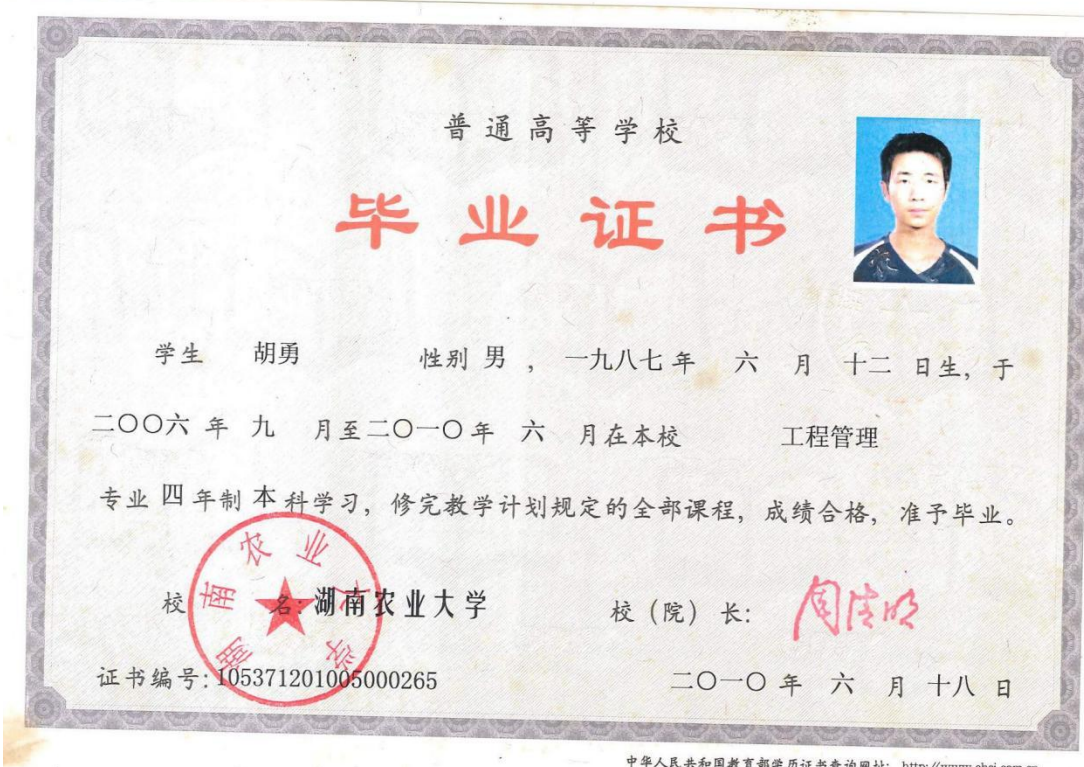 普通高等学校
毕业证书
学生 胡勇 性别 男 , 一九八七 年 六 月 十二 日生, 于
二〇〇六 年 九 月至 二〇一〇 年 六 月在本校 工程管理
专业 四 年制 本 科学习, 修完教学计划规定的全部课程, 成绩合格, 准予毕业。
湖南农业大学
校 名: 湖南农业大学 校(院)长: 周清明
证书编号: 105371201005000265 二〇一〇 年 六 月 十八 日
中华人民共和国教育部学历证书查询网址: